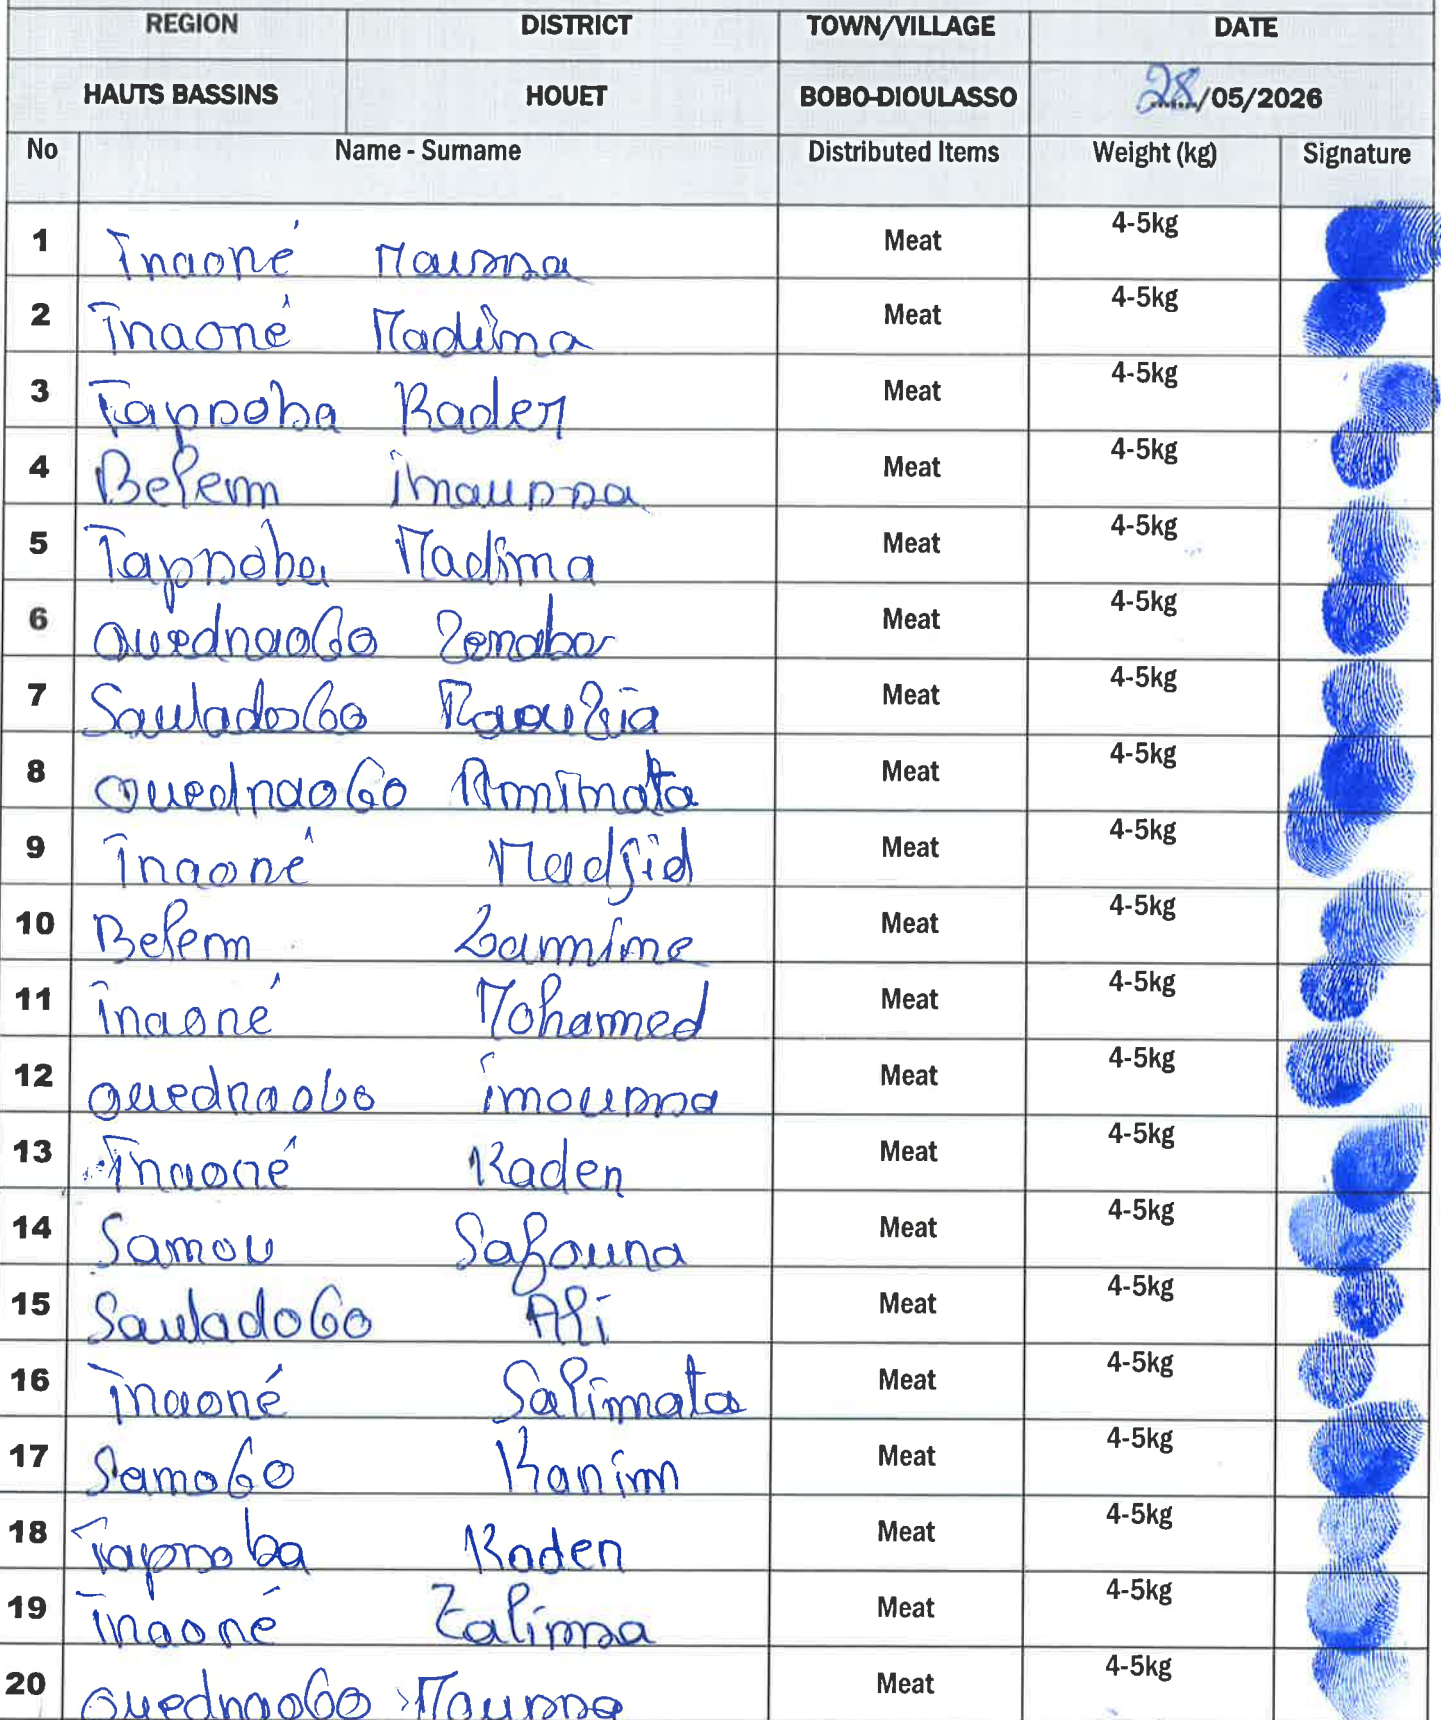 REGION DISTRICT TOWN/VILLAGE DATE
HAUTS BASSINS HOUET BOBO-DIOULASSO 28/05/2026
No Name - Surname Distributed Items Weight (kg) Signature
1 Traoré Moussa Meat 4-5kg
2 Traoré Madina Meat 4-5kg
3 Tapsoba Kader Meat 4-5kg
4 Belem Inoussa Meat 4-5kg
5 Tapsoba Madina Meat 4-5kg
6 Ouedraogo Zenabo Meat 4-5kg
7 Sawadogo Raouzia Meat 4-5kg
8 Ouedraogo Aminata Meat 4-5kg
9 Traoré Madjid Meat 4-5kg
10 Belem Lamine Meat 4-5kg
11 Traoré Mohamed Meat 4-5kg
12 Ouedraogo Inoussa Meat 4-5kg
13 Traoré Kader Meat 4-5kg
14 Sanou Safoura Meat 4-5kg
15 Sawadogo Ali Meat 4-5kg
16 Traoré Salimata Meat 4-5kg
17 Sanogo Karim Meat 4-5kg
18 Tapsoba Kader Meat 4-5kg
19 Traoré Talissa Meat 4-5kg
20 Ouedraogo Moussa Meat 4-5kg